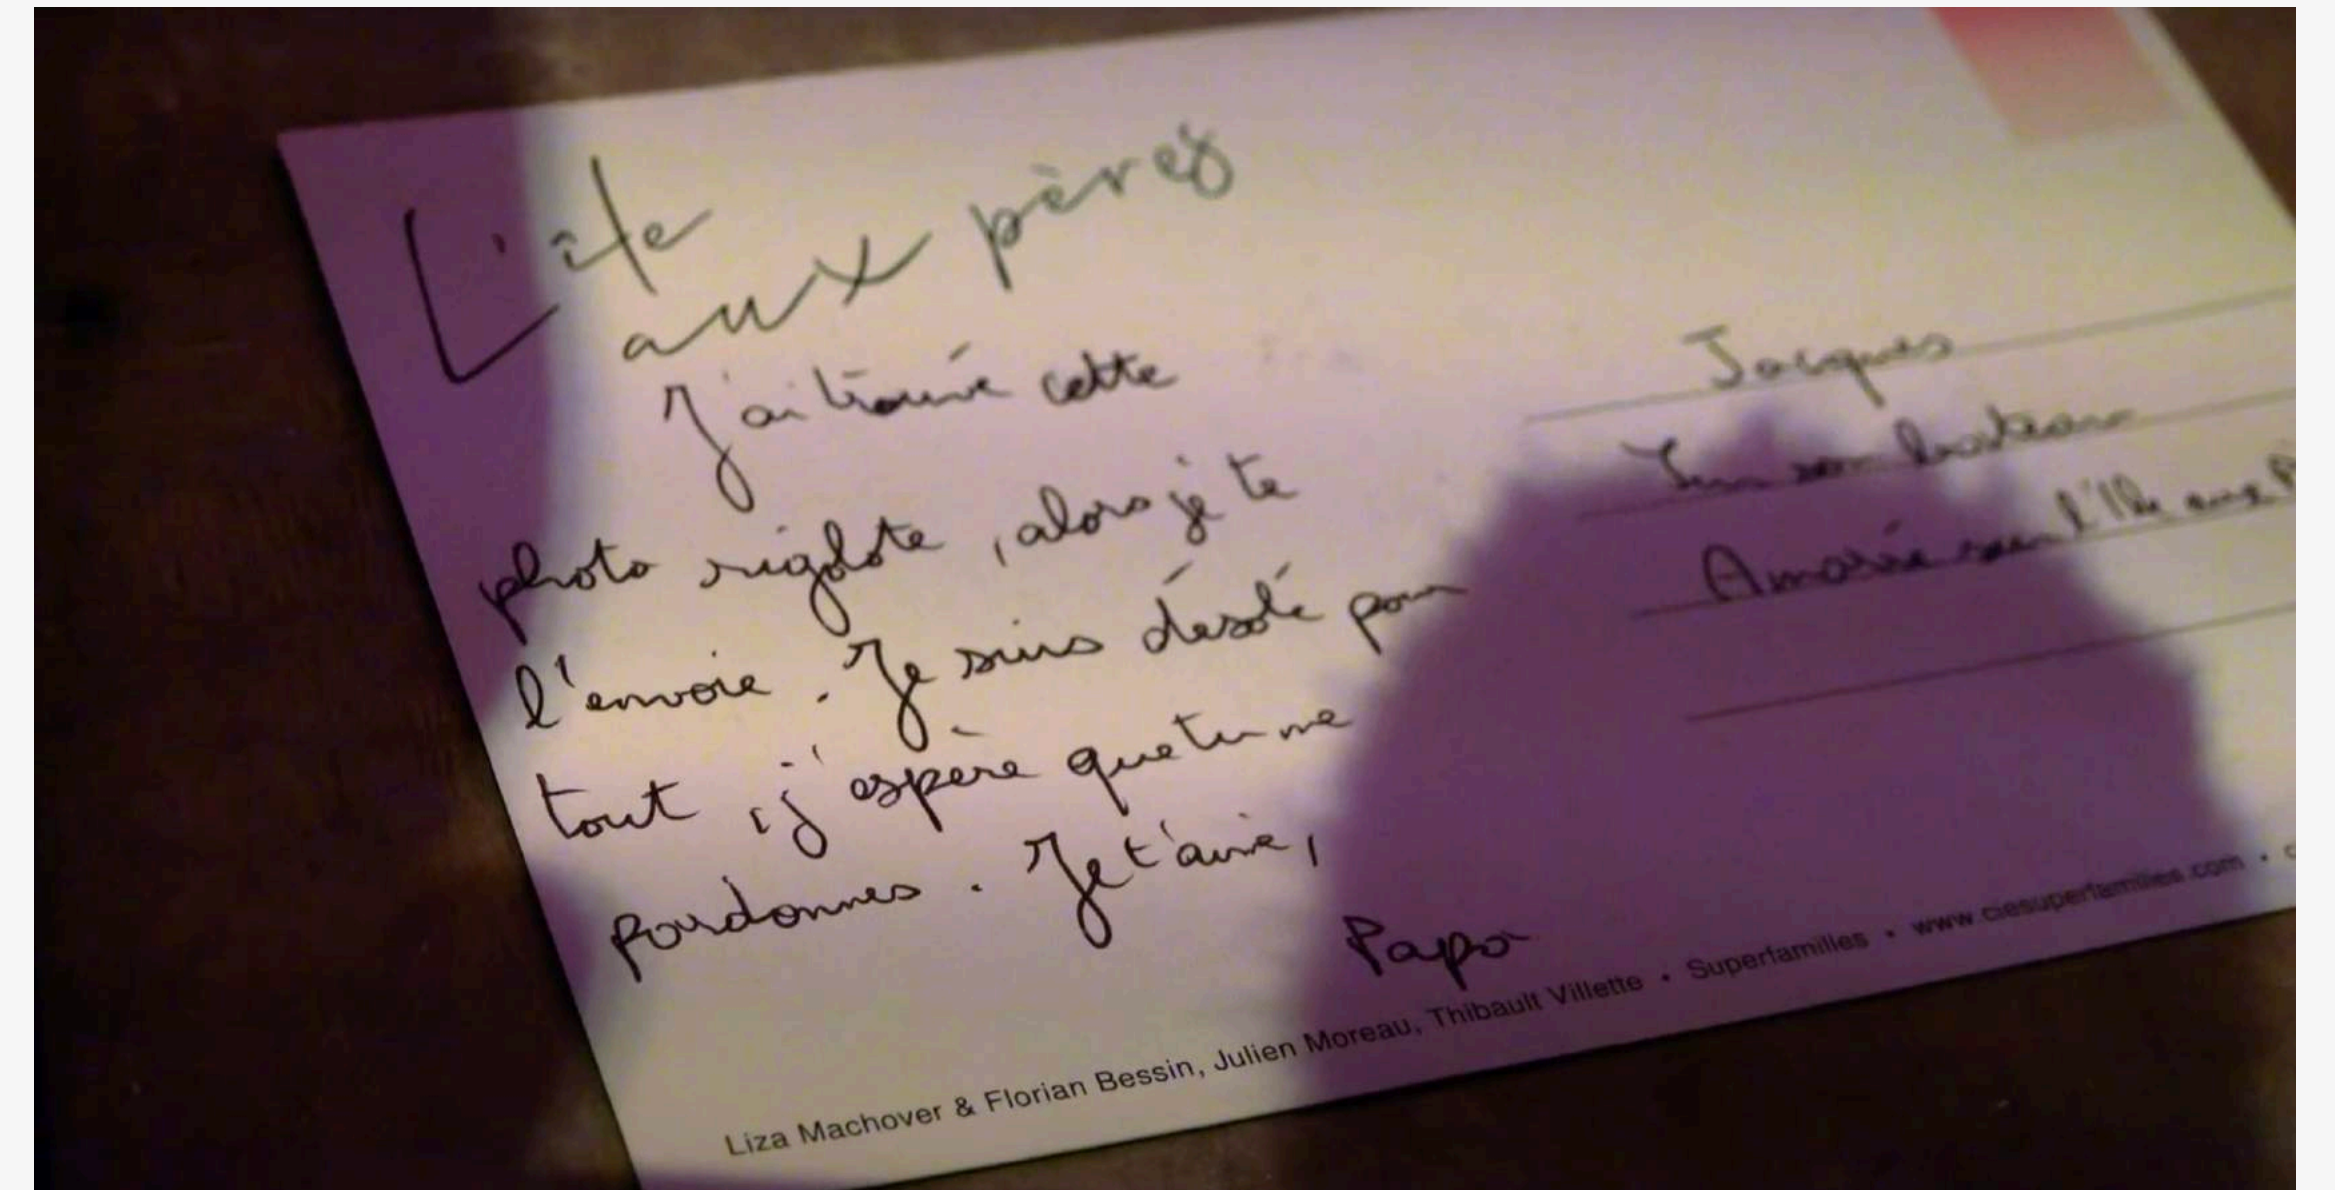 L'île
aux pères
J'ai trouvé cette
photo rigolote, alors je te
l'envoie. Je suis désolé pour
tout, j'espère que tu me
pardonnes. Je t'aime,
Papa
Jacques
Sur son bateau
Amarré sur l'île aux
Liza Machover & Florian Bessin, Julien Moreau, Thibault Villette • Superfamilles • www.ciesuperfamilles.com •